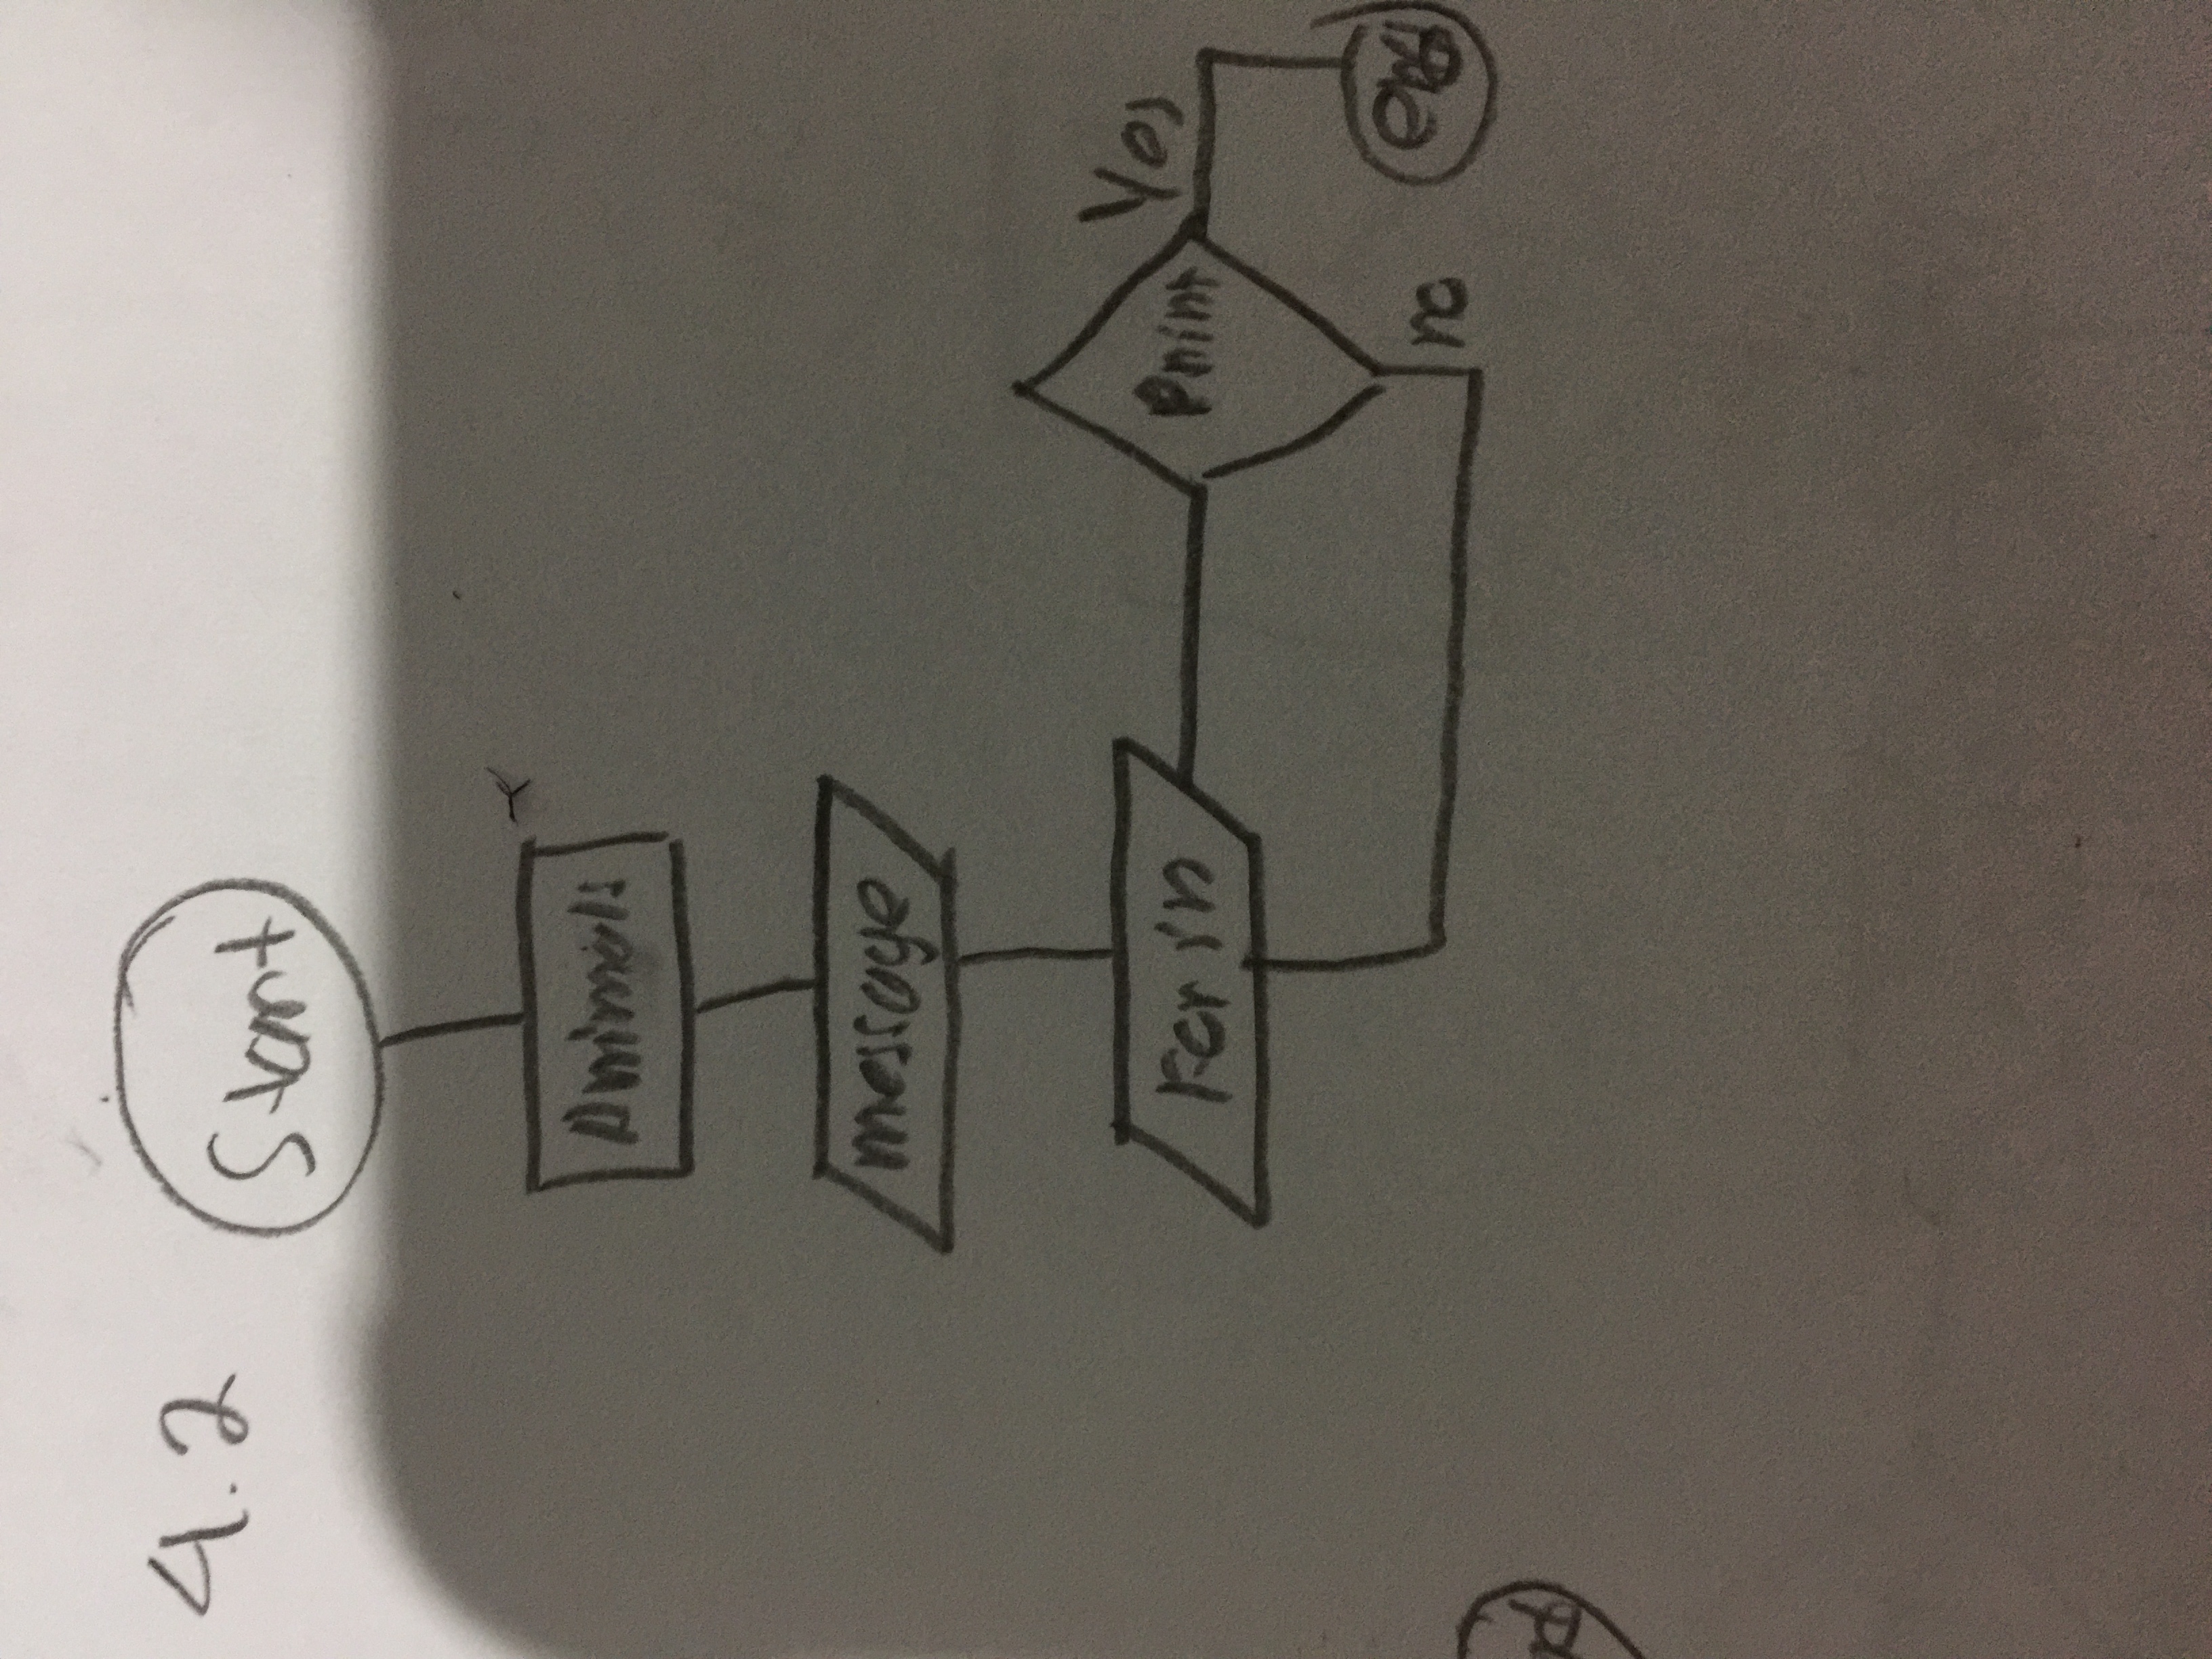 4.2
Start
Animals
message
For in
Print
Yes
no
end